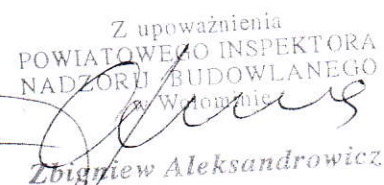 Z upoważnienia
POWIATOWEGO INSPEKTORA
NADZORU BUDOWLANEGO
w Wołominie
Zbigniew Aleksandrowicz